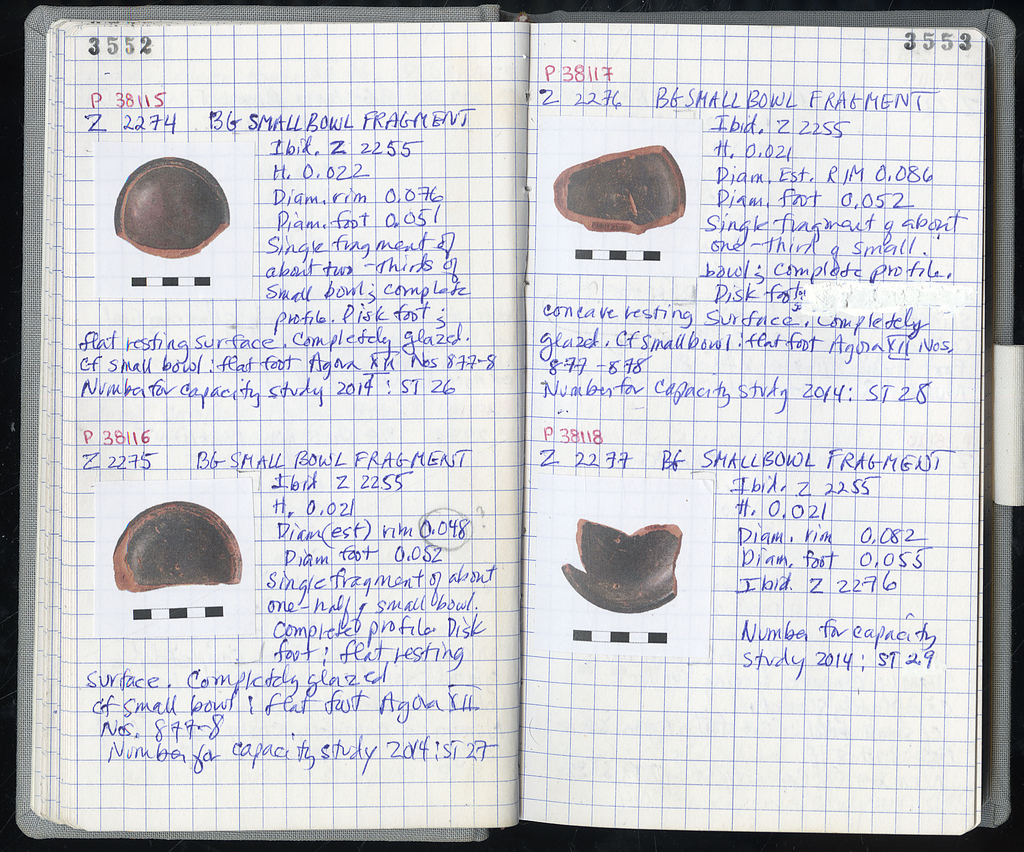 3552
P 38115
Z 2274 BG SMALL BOWL FRAGMENT
Ibid. Z 2255
H. 0.022
Diam. rim 0.076
Diam. foot 0.051
Single fragment of
about two-thirds of
small bowl; complete
profile. Disk foot;
flat resting surface. Completely glazed.
Cf small bowl: flat foot Agora XII Nos 877-8
Number for capacity study 2014: ST 26
P 38116
Z 2275 BG SMALL BOWL FRAGMENT
Ibid Z 2255
H. 0.021
Diam(est) rim 0.048 ?
Diam foot 0.052
Single fragment of about
one-half of small bowl.
Completed profile. Disk
foot; flat resting
surface. Completely glazed
cf small bowl: flat foot Agora XII
Nos. 877-8
Number for capacity study 2014: ST 27
3553
P 38117
Z 2276 BG SMALL BOWL FRAGMENT
Ibid. Z 2255
H. 0.021
Diam. Est. RIM 0.086
Diam. foot 0.052
Single fragment of about
one-third of small
bowl; complete profile.
Disk foot;
concave resting surface. Completely
glazed. Cf small bowl: flat foot Agora XII Nos.
877-878
Number for capacity study 2014: ST 28
P 38118
Z 2277 BG SMALL BOWL FRAGMENT
Ibid. Z 2255
H. 0.021
Diam. rim 0.082
Diam. foot 0.055
Ibid. Z 2276
Number for capacity
study 2014: ST 29